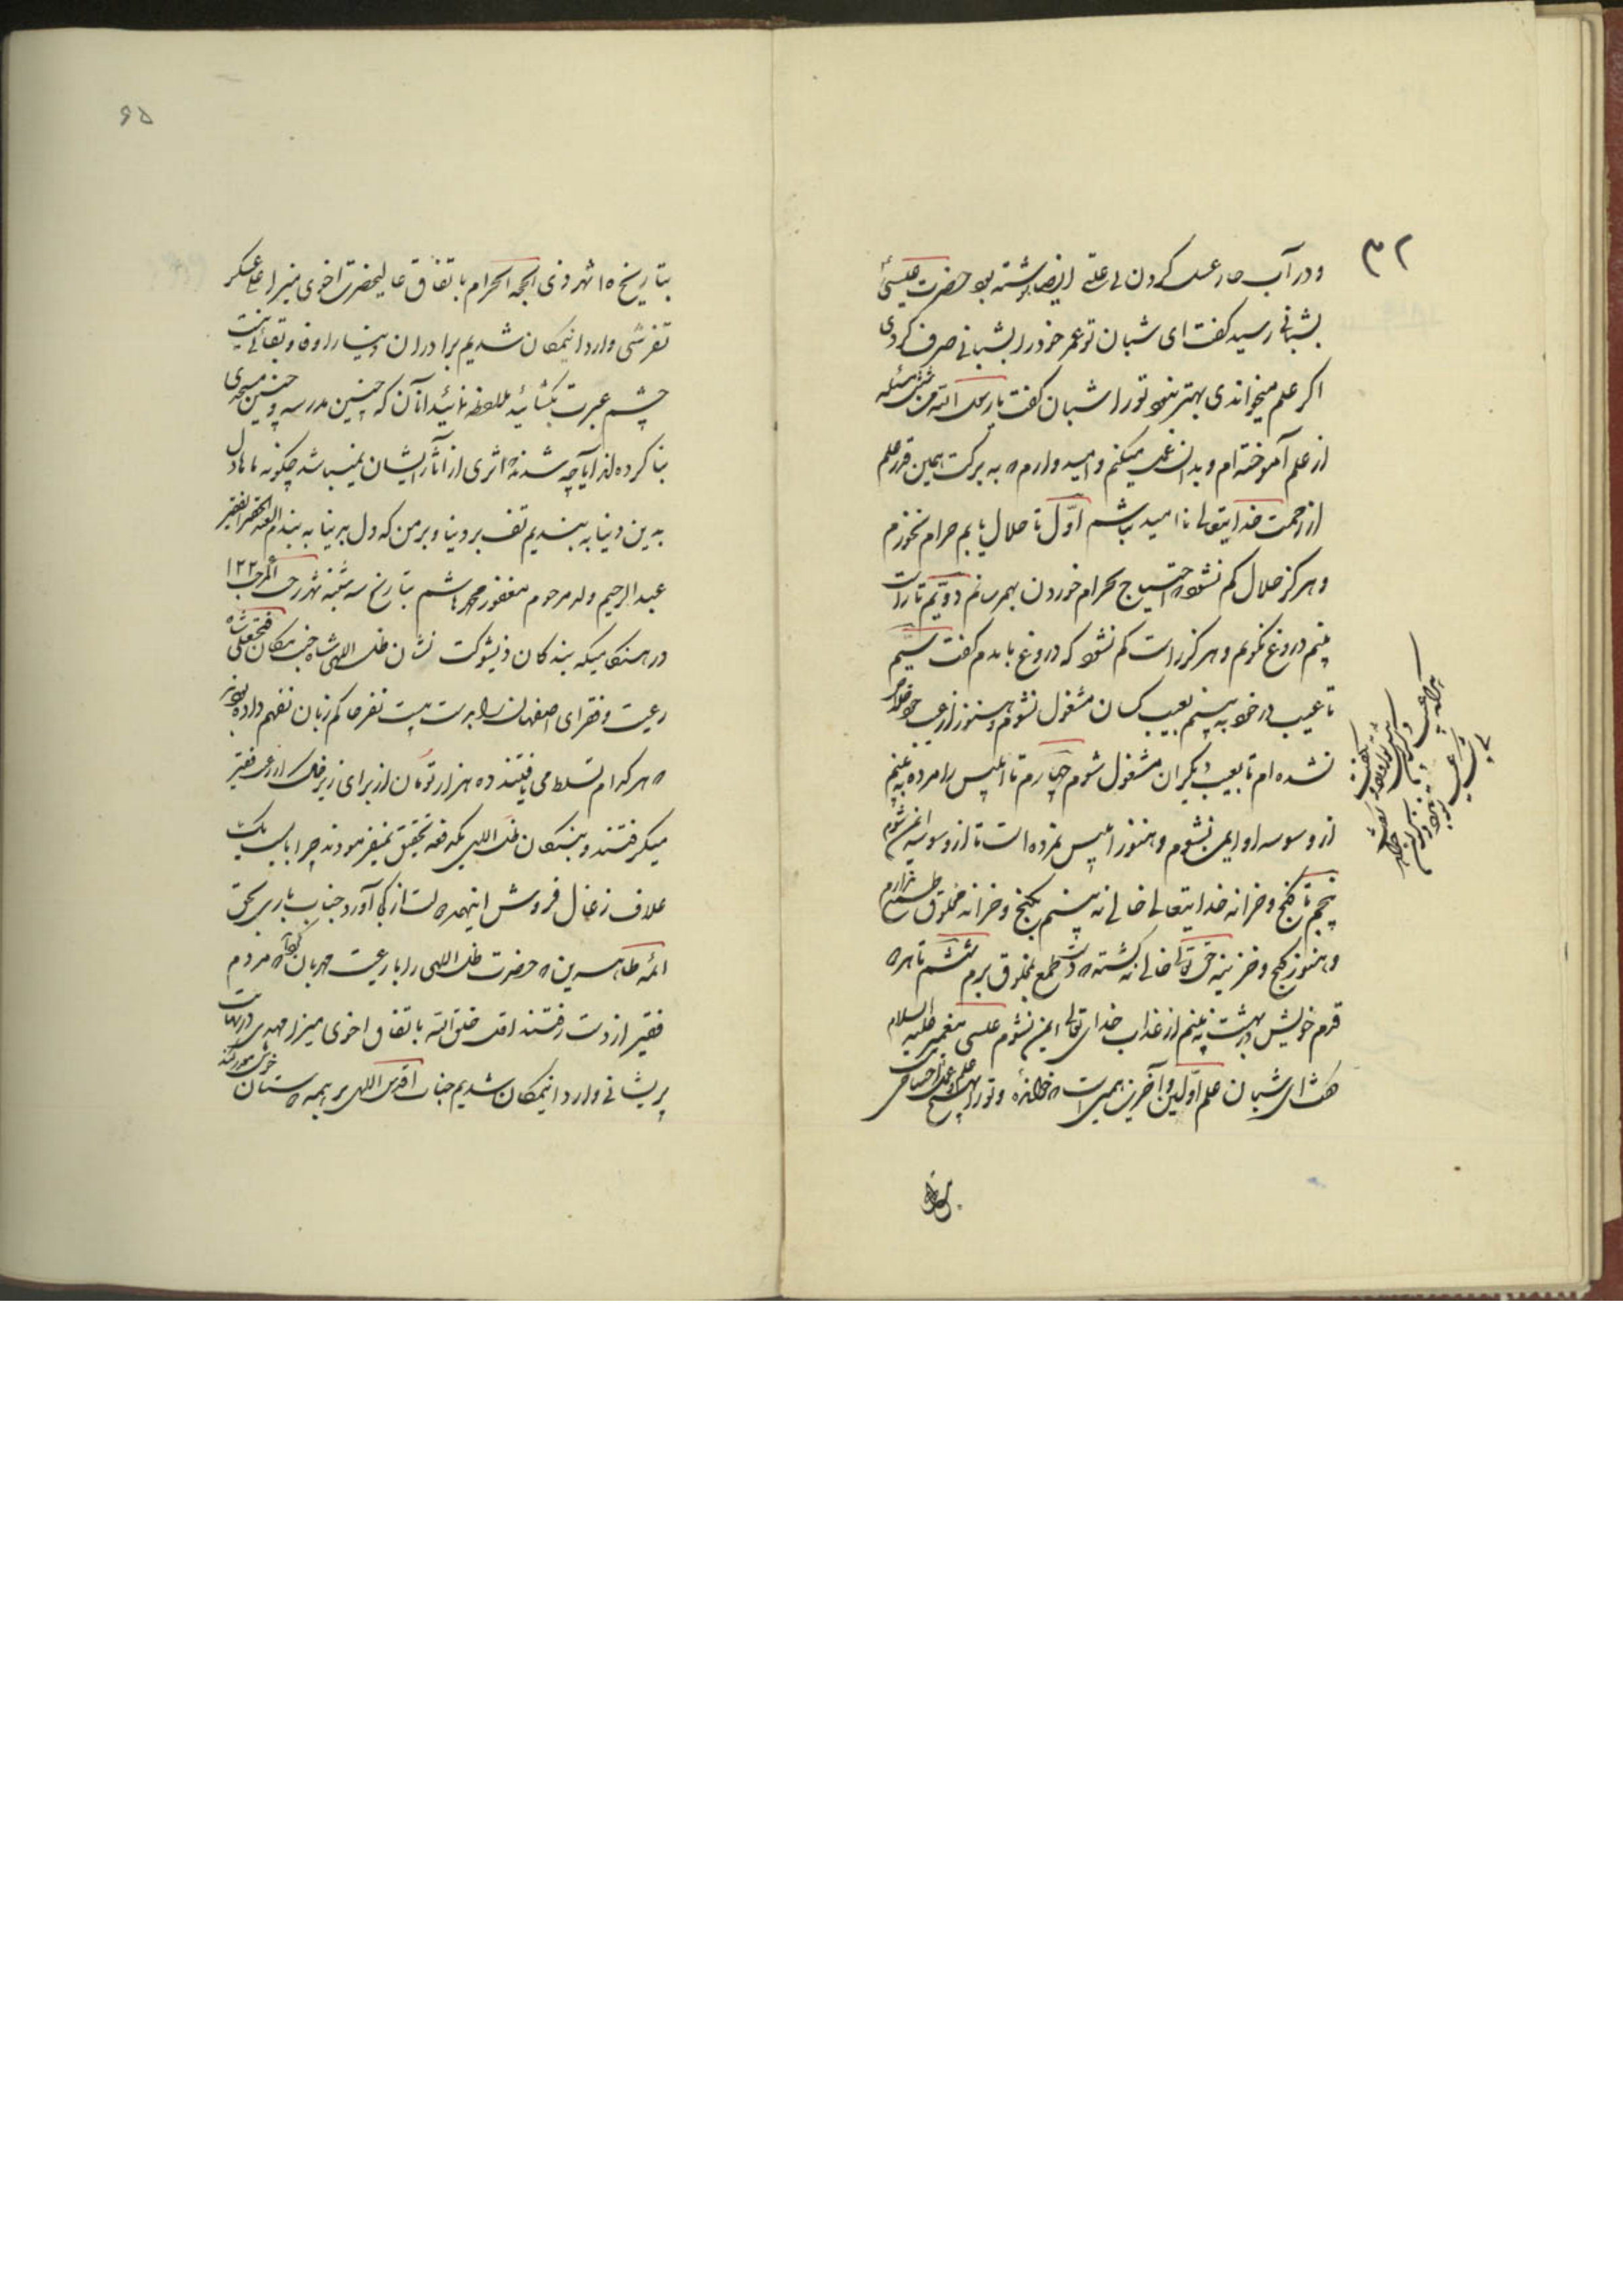 ۳۲
و در آب جاری غسل کردن بی علتی ایضا نوشته بود حضرت عیسی
بشبانی رسید گفت ای شبان تو عمر خود را بشبانی صرف کردی
اگر علم میخواندی بهتر نبود تو را شبان گفت یا رسول الله من شش مسئله
از علم آموخته‌ام و بدان عمل میکنم و امیدوارم که به برکت همین قدر علم
از رحمت خدایتعالی ناامید نباشم اوّل تا حلال یابم حرام نخورم
و هرگز حلال کم نشود که احتیاج بحرام خوردن بهمرسانم دویّم تا راست
بینم دروغ نگویم و هرگز راست کم نشود که دروغ بایدم گفت سیّم
تا عیب در خود به بینم بعیب کسان مشغول نشوم و هنوز از عیب خود خلاص
نشده‌ام تا بعیب دیگران مشغول شوم چهارم تا ابلیس را مرده به بینم
از وسوسه او ایمن نشوم و هنوز ابلیس نمرده است تا از وسوسه ایمن شوم
پنجم تا گنج و خزانه خدایتعالی خالی نه بینم بگنج و خزانه مخلوق طمع ندارم
و هنوز گنج و خزینه حق تعالی خالی نه گشته که دست طمع بمخلوق برم ششم تا هر دو
قدم خویش در بهشت نه بینم از عذاب خدای تعالی ایمن نشوم عیسی پیغمبر علیه السلام
گفت ای شبان علم اوّلین و آخرین همین است که خوانده و تو را بهیچ علم و عمل احتیاجی
۶۵
بتاریخ ۱۵ شهر ذی الحجه الحرام باتفاق عالیحضرت اخوی میرزا علی عسکر
تفرشی وارد اینمکان شدیم برادران دنیا را وفا و بقائی نیست
چشم عبرت بگشائید ملاحظه نمائید آنان که چنین مدرسه و چنین مسجدی
بنا کرده‌اند آیا چه شدند که اثری از آثار ایشان نمیباشد چگونه ماها دل
بدین دنیا به بندیم تف بر دنیا و بر من که دل بر دنیا به بندم العبد الحقیر الفقیر
عبدالرحیم ولد مرحوم مغفور محمد هاشم بتاریخ سه شنبه شهر رجب المرجب ۱۲۲
در هنگامیکه بندگان ذیشوکت نشان ظل اللهی شاه جنت مکان فتحعلی شاه
رعیت و فقرای اصفهان را بدست بیست نفر حاکم زبان نفهم داده بودند
که هر کدام تسلط می یافتند ده هزار تومان از برای زیر فلک از رعیت فقیر
میگرفتند و بندگان ظل اللهی یکدفعه تحقیق نمیفرمودند چرا بایست یک
علاف زغال فروش اینهمه دولت از کجا آورد جناب باری بحق
ائمه طاهرین که حضرت ظل اللهی را با رعیت مهربان گرداند که مردم
فقیر از دست رفتند اقل خلق الله باتفاق اخوی میرزا مهدی در نهایت
پریشانی وارد اینمکان شدیم جناب اقدس اللهی بر همه دوستان